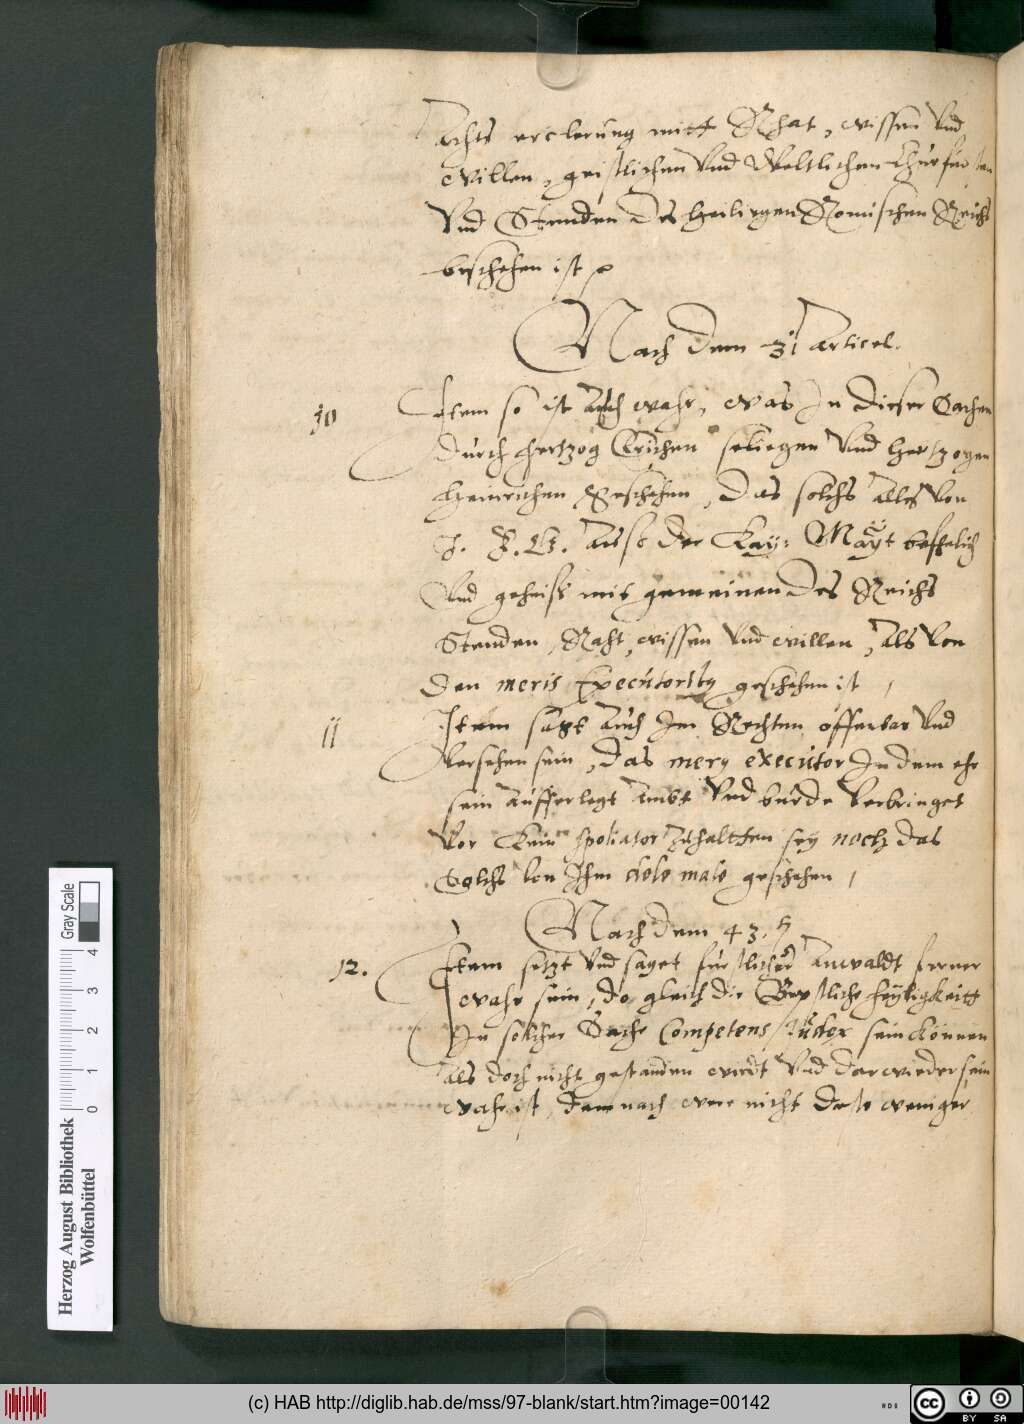 Achts erclerung mitt Rhat, wissen Vnd
willen, geistlichen Vnd Weltlichen Churfürsten
Vnd Stenden des heiligen Romischen Reichs
beschehen ist
Nach dem 31 Articel.
10
Item so ist Auch wahr, was In dieser Sachen
durch hertzog Erichen seliegen Vnd hertzogen
Heinrichen Geschehen, das solchs Alles Von
I. F. G. Auss der Kay: Mayt befhelich
Vnd geheiss mit gemeinen des Reichs
Stenden, Raht, wissen Vnd willen, Als Von
den meris Executoriby geschehen ist,
11
Item sagt Auch Im Rechten offenbar Vnd
Versehen sein, das mery executor In dem ehr
sein Aufferlegt Ambt Vnd burde Verbringet
Vor Kein spoliator Zuhaltten sey noch das
Solchs Von Ihm dolo malo geschehen,
Nach dem 43.
12.
Item setzt Vnd saget fürstlicher Anwaldt ferner
wahr sein, do gleich die Bepstliche heyligkeitt
In solcher Sache Competens Iudex sein können
als doch nicht gestanden wirdt Vnd darwieder sein
wahr ist, dannach were nicht deste weniger
Herzog August Bibliothek
Wolfenbüttel
0 1 2 3 4
Gray Scale
(c) HAB http://diglib.hab.de/mss/97-blank/start.htm?image=00142
cc BY SA